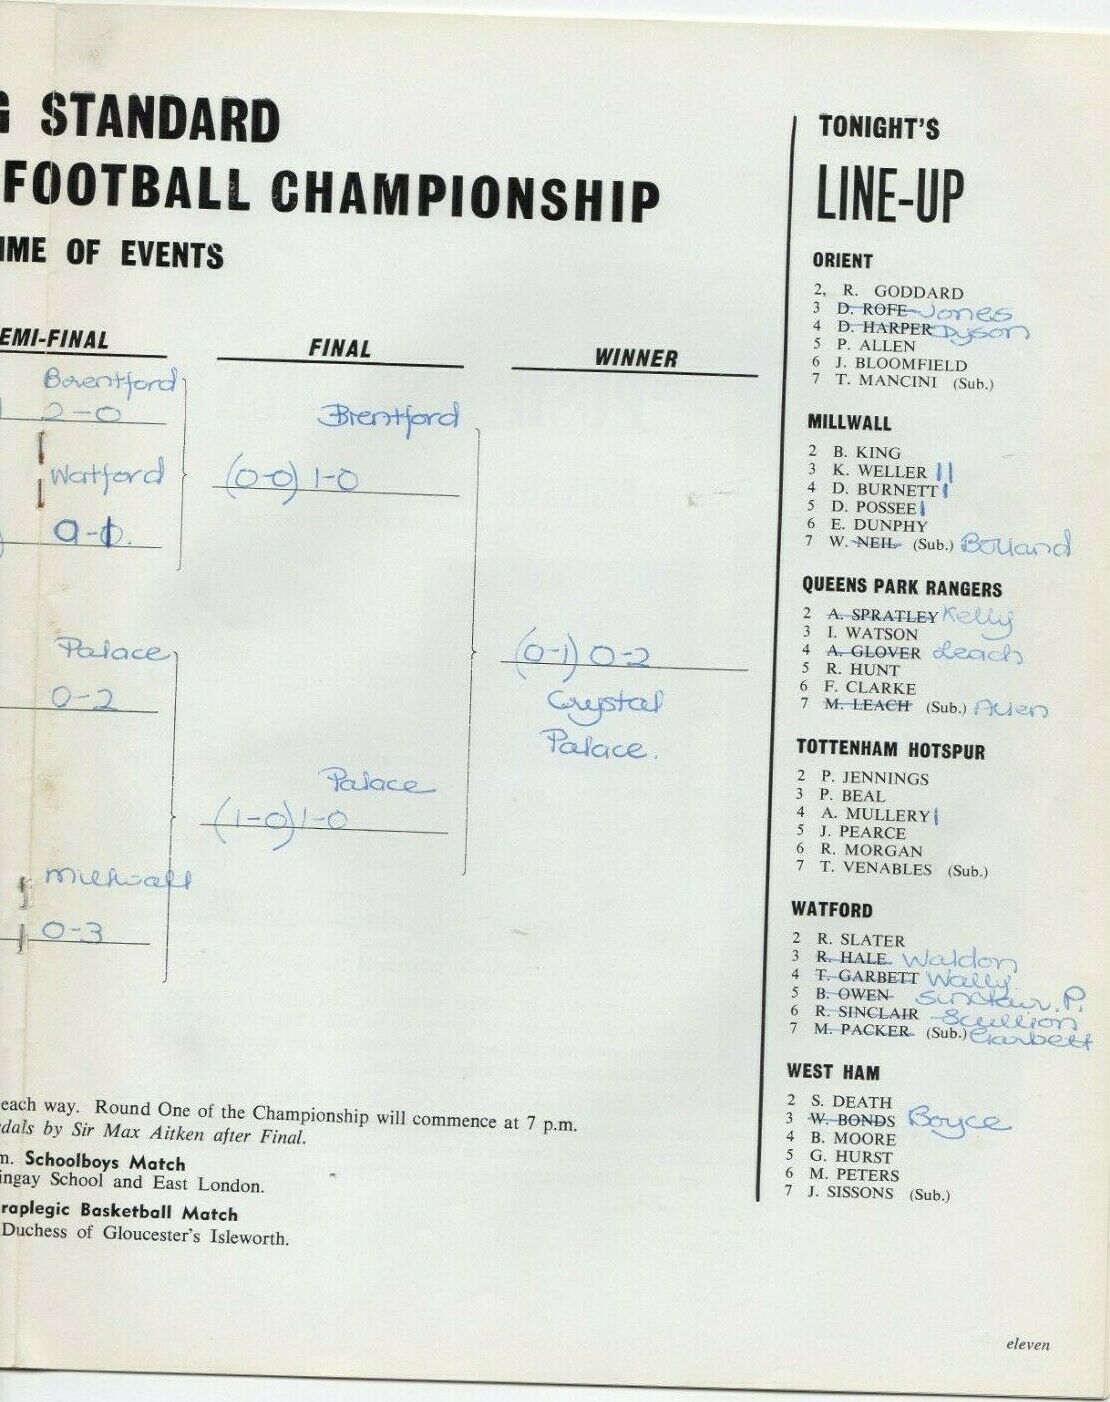 G STANDARD
FOOTBALL CHAMPIONSHIP
IME OF EVENTS
EMI-FINAL
FINAL
WINNER
Brentford
2-0
Watford
0-1.
Brentford
(0-0) 1-0
Palace
0-2
(0-1) 0-2
Crystal
Palace.
Palace
(1-0) 1-0
Millwall
0-3
each way. Round One of the Championship will commence at 7 p.m.
dals by Sir Max Aitken after Final.
m. Schoolboys Match
ingay School and East London.
raplegic Basketball Match
Duchess of Gloucester's Isleworth.
TONIGHT'S
LINE-UP
ORIENT
2, R. GODDARD
3 D. ROFE Jones
4 D. HARPER Dyson
5 P. ALLEN
6 J. BLOOMFIELD
7 T. MANCINI (Sub.)
MILLWALL
2 B. KING
3 K. WELLER ||
4 D. BURNETT |
5 D. POSSEE |
6 E. DUNPHY
7 W. NEIL (Sub.) Bolland
QUEENS PARK RANGERS
2 A. SPRATLEY Kelly
3 I. WATSON
4 A. GLOVER Leach
5 R. HUNT
6 F. CLARKE
7 M. LEACH (Sub.) Allen
TOTTENHAM HOTSPUR
2 P. JENNINGS
3 P. BEAL
4 A. MULLERY |
5 J. PEARCE
6 R. MORGAN
7 T. VENABLES (Sub.)
WATFORD
2 R. SLATER
3 R. HALE Waldon
4 T. GARBETT Wally
5 B. OWEN Sinclair. P.
6 R. SINCLAIR Scullion
7 M. PACKER (Sub.) Garbett
WEST HAM
2 S. DEATH
3 W. BONDS Boyce
4 B. MOORE
5 G. HURST
6 M. PETERS
7 J. SISSONS (Sub.)
eleven